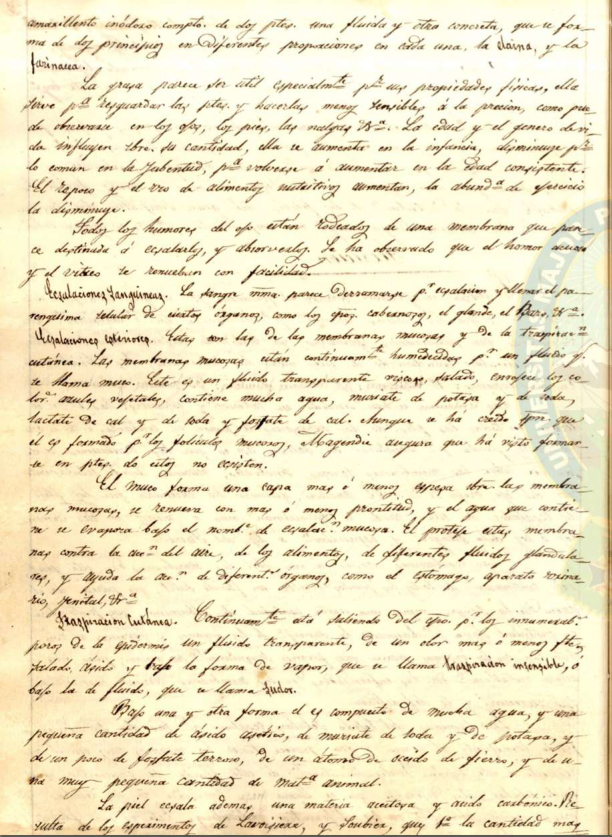 amarillento inodoro compto. de dos ptes. una fluida y otra concreta, que se for-
ma de dos principios en diferentes proporciones en cada una, la elaina, y la
La grasa parece ser util especialmte. pr. sus propiedades fisicas, ella
sirve pa. resguardar las ptes. y hacerlas menos sensibles á la presion, como pue-
de observarse en los ojos, los pies, las nalgas &a. La edad y el genero de vi-
da influyen sbre. su cantidad, ella se aumenta en la infancia, disminuye pr.
lo comun en la Jubentud, pa. volverse á aumentar en la edad consistente.
El reposo y el uso de alimentos nutritivos aumentan, la abunda. de ejercicio
la disminuye.
Todos los humores del ojo están rodeados de una membrana que pare-
ce destinada á ecsalarlos, y absorverlos. Se ha observado que el homor acuoso
y el vitreo se renueban con facilidad.
Ecsalaciones Sanguineas. La sangre mma. parece derramarse pr. ecsalacion y llenar el pa-
renquima celular de ciertos órganos, como los cpos. cabernozos, el glande, el Bazo, &a.
Ecsalaciones esteriores. Estas son las de las membranas mucosas y de la traspiracn.
cutánea. Las membranas mucosas están continuamte. humedecidas pr. un fluido qe.
se llama muco. Este es un fluido transparente viscoso, salado, enrojece los co-
lors. azules vejetales, contiene mucha agua, muriate de potasa y de soda,
lactate de cal y de soda y fosfate de cal. Aunque se há creido spre. que
el es formado pr. los foliculos mucosos, Magendie asegura que há visto formar-
se en ptes. do estos no ecsisten.
El muco forma una capa mas ó menos espesa sbre. las membra-
nas mucosas, se renueva con mas ó menos prontitud, y el agua que contie-
ne se evapora bajo el nombe. de ecsalacn. mucosa. El proteje estas membra-
nas contra la accn. del aire, de los alimentos, de diferentes fluidos glandula-
res, y ayuda la accn. de diferents. órganos, como el estómago, aparato urina-
rio, jenital, &a.
Traspiracion Cutánea. Continuamte. está saliendo del cpo. pr. los innumerabs.
poros de la epidermis un fluido transparente, de un olor mas ó menos fte.,
salado, ásido y bajo la forma de vapor, que se llama traspiracion insensible, ó
bajo la de fluido, que se llama Sudor.
Bajo una y otra forma el es compuesto de mucha agua, y una
pequeña cantidad de ásido acetico, de muriate de soda y de potasa, y
de un poco de fosfate terroso, de un atomo de ocsido de fierro, y de u-
na muy pequeña cantidad de mata. animal.
La piel ecsala ademas una materia aceitosa y acido carbónico. Re-
sulta de los esperimentos de Lavoisiear, y que la cantidad mas